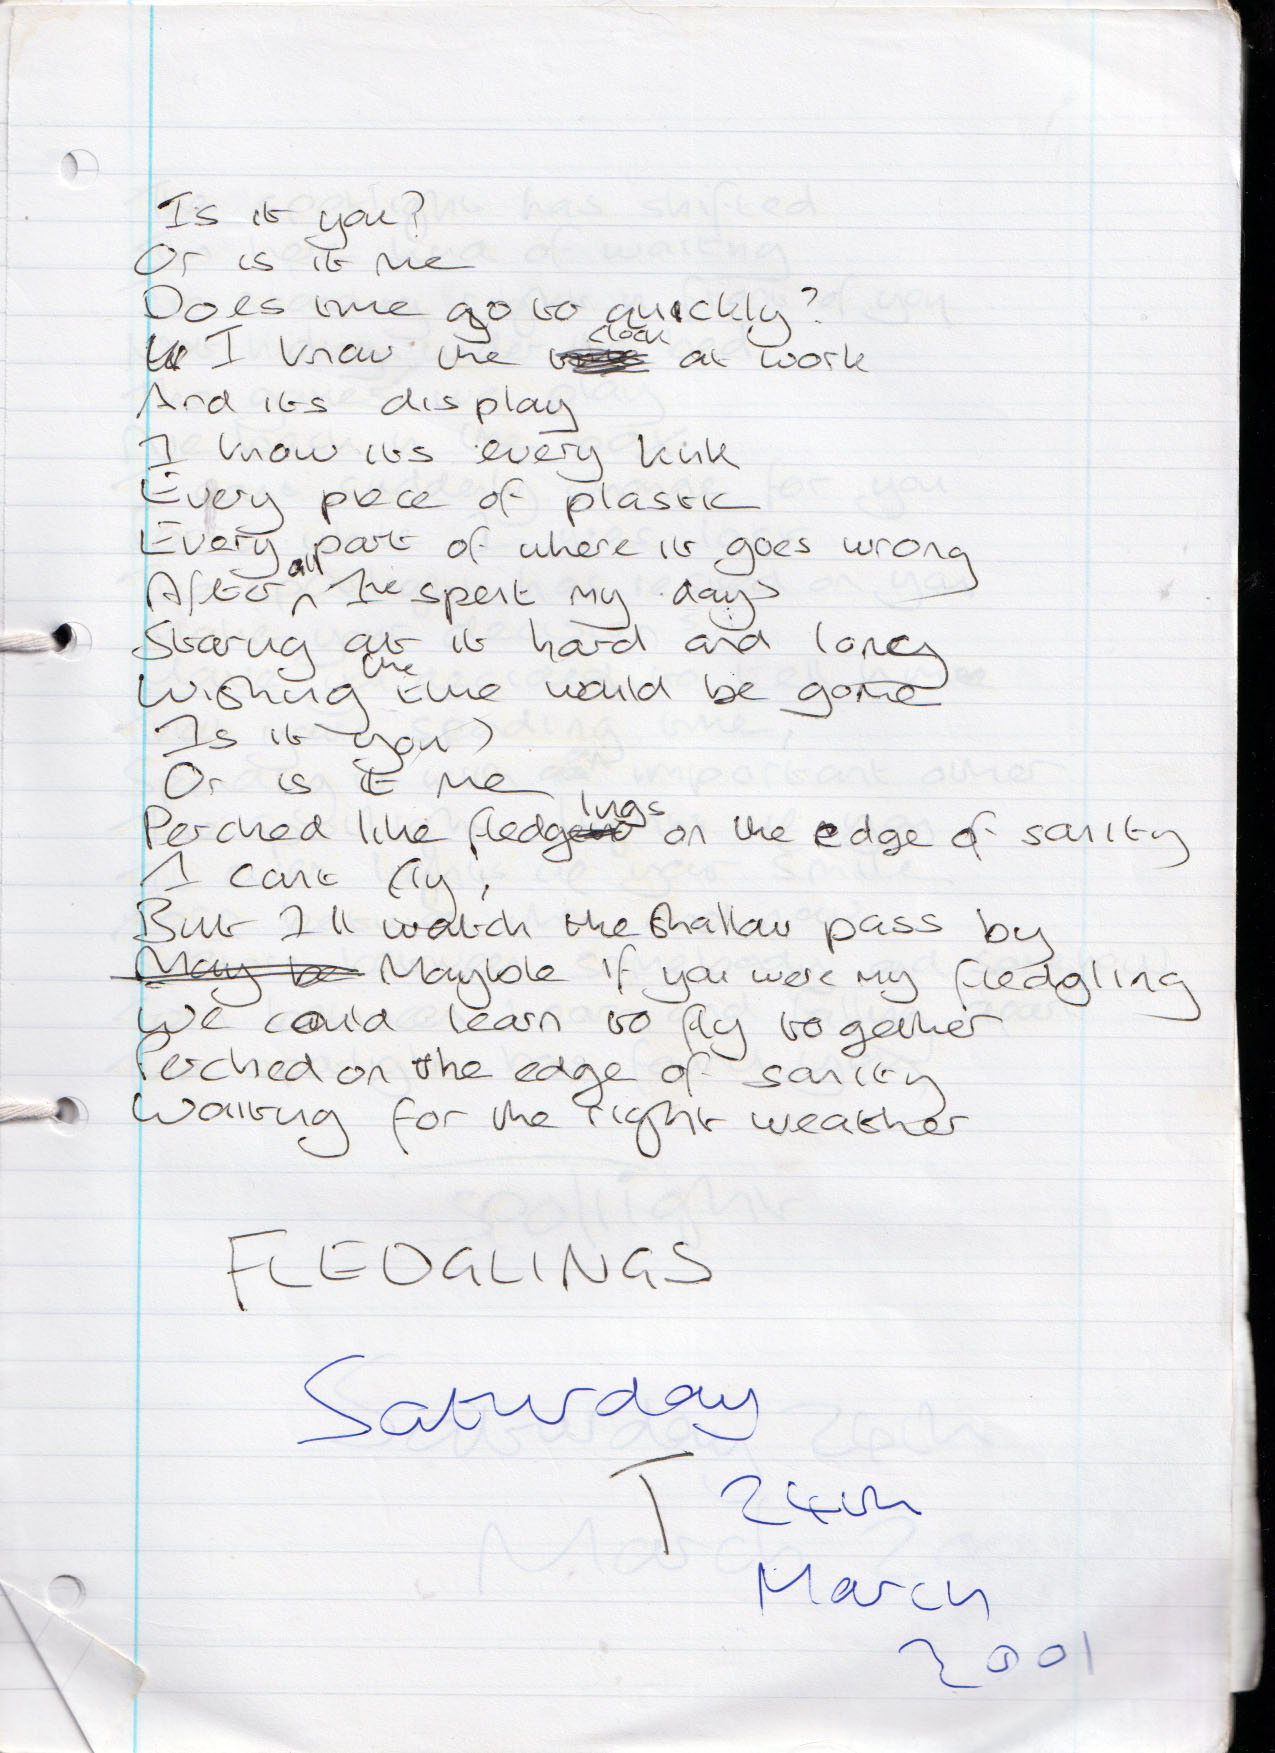 Is it you?
Or is it me
Does time go to quickly?
I know the clock at work
And its display
I know its every kink
Every piece of plastic
Every part of where it goes wrong
After all I've spent my days
Staring at it hard and long
Wishing the time would be gone
Is it you?
Or is it me
Perched like fledglings on the edge of sanity
I cant fly,
But I'll watch the shallow pass by
May be Maybe if you were my fledgling
We could learn to fly together
Perched on the edge of sanity
Waiting for the right weather
FLEDGLINGS
Saturday
T 24th
March
2001